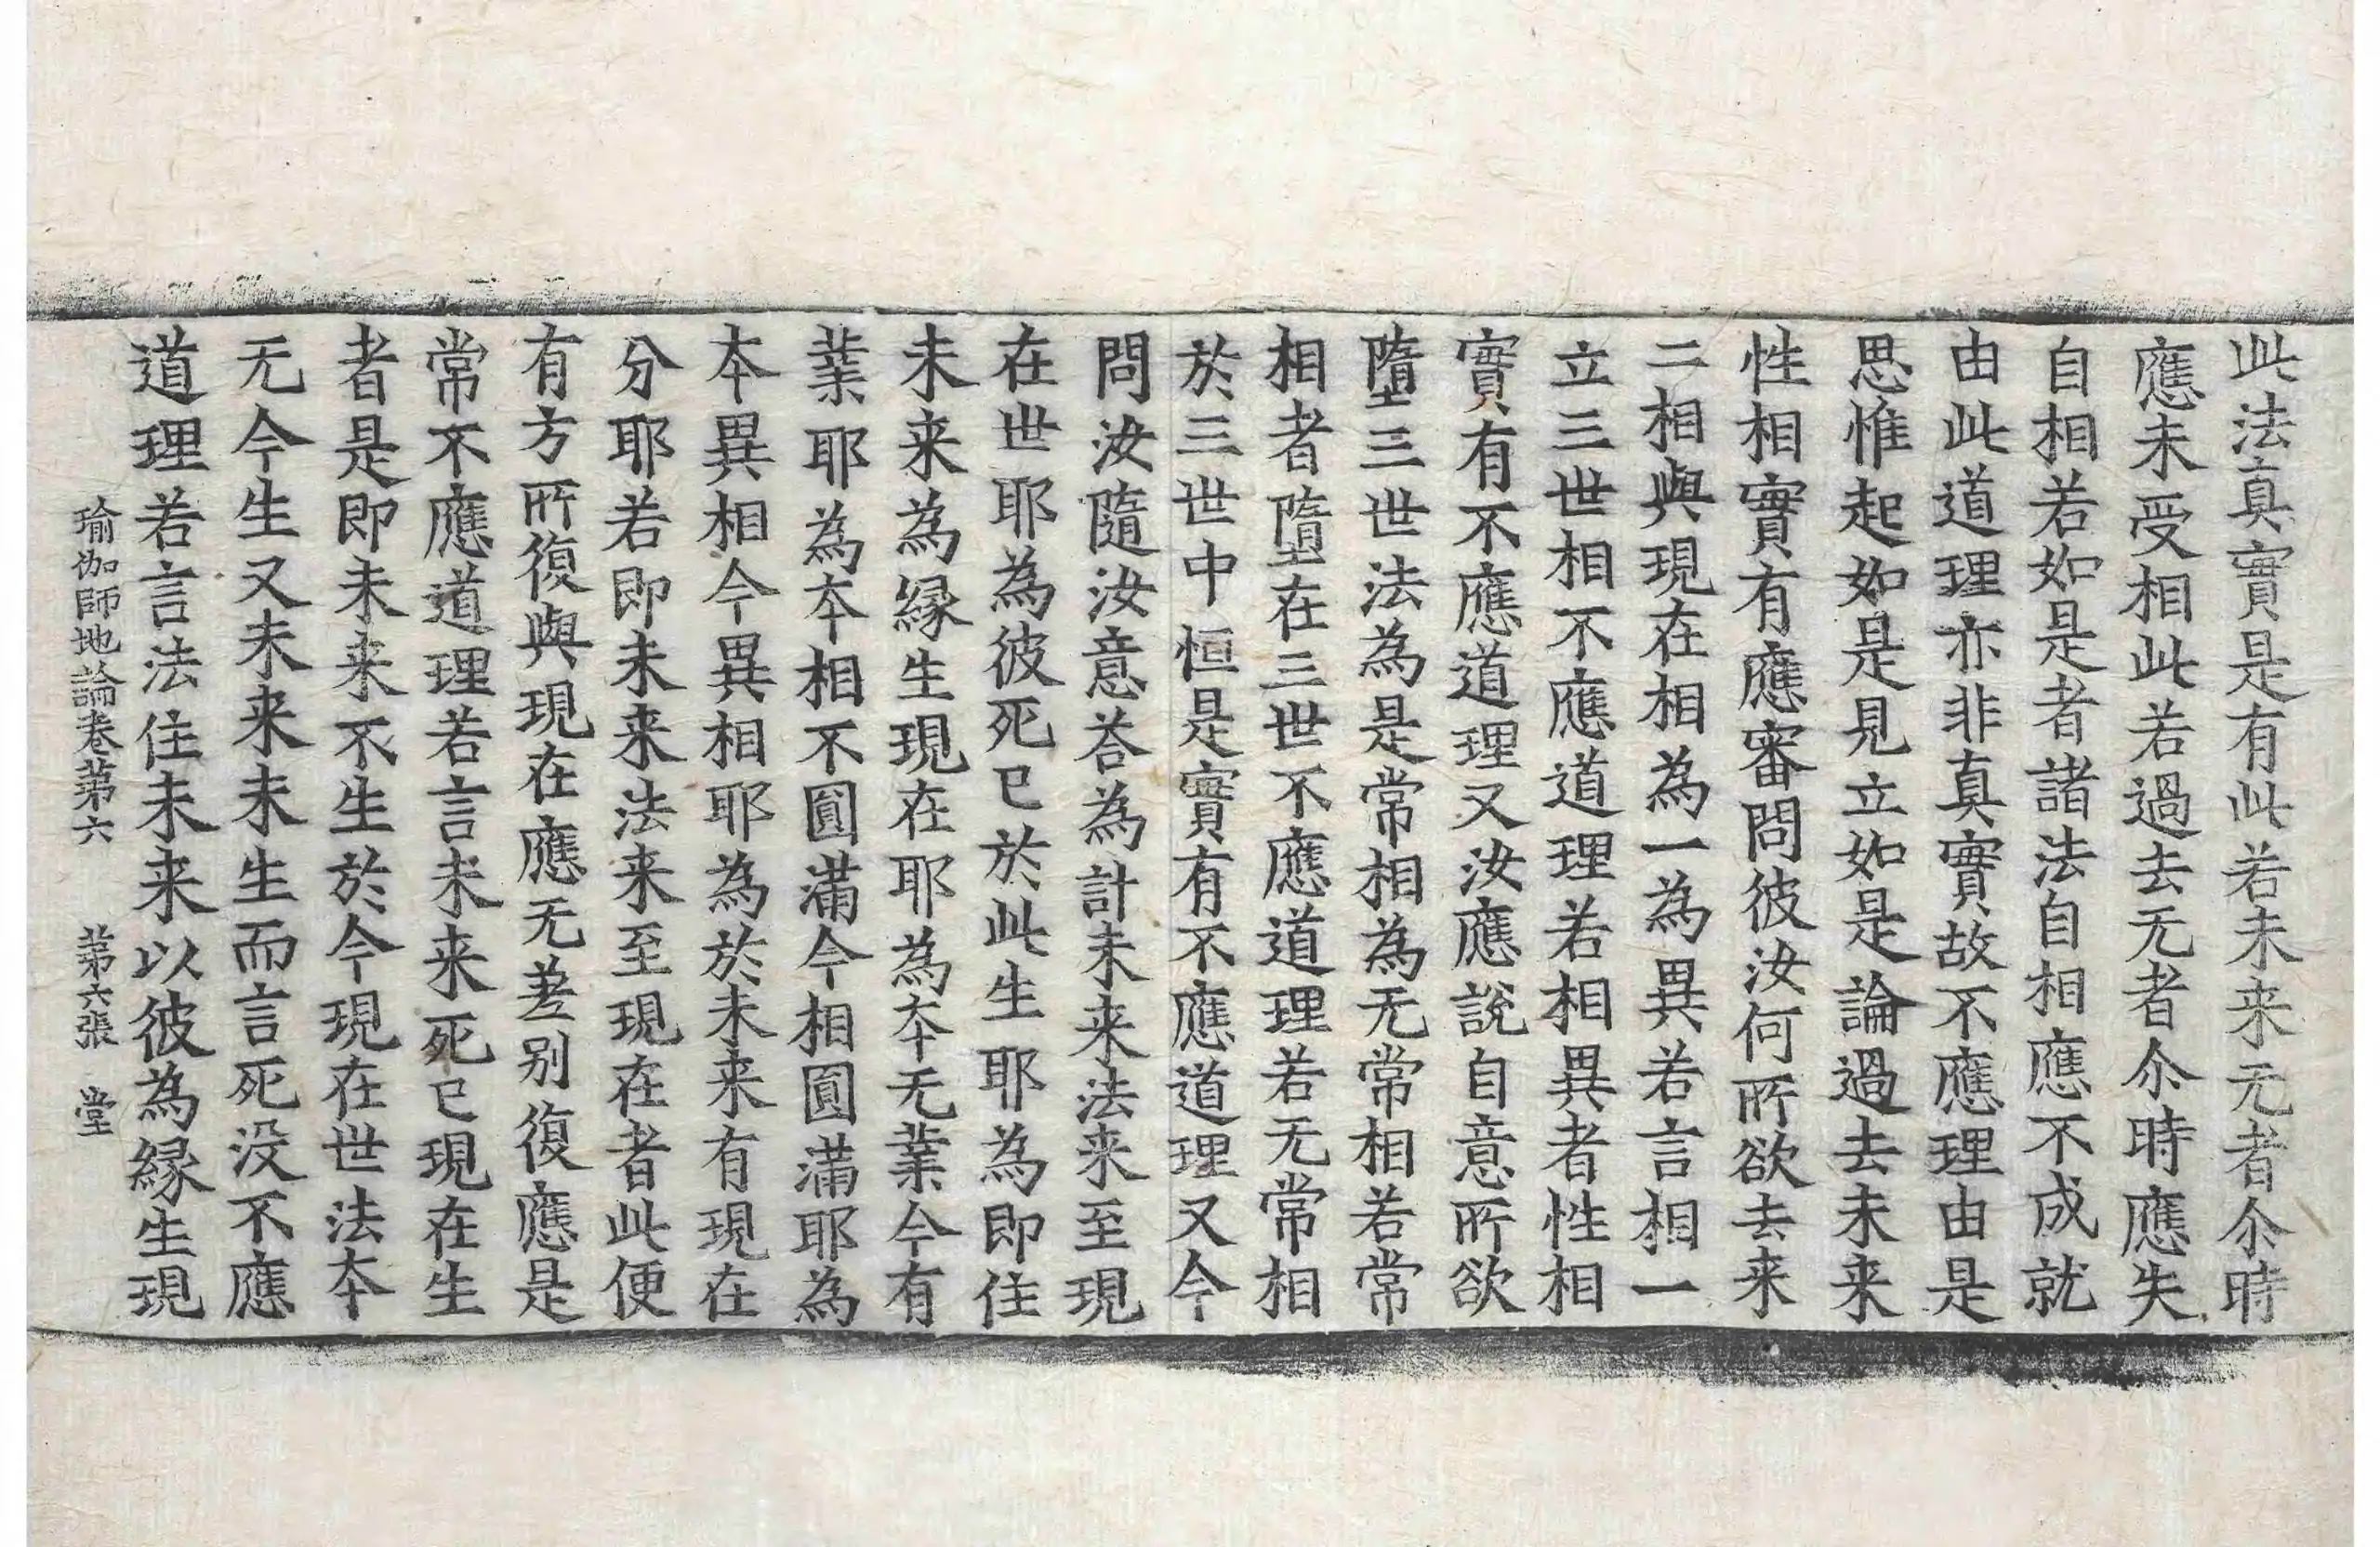 此法真實是有此若未来无者尒時
應未受相此若過去无者尒時應失
自相若如是者諸法自相應不成就
由此道理亦非真實故不應理由是
思惟起如是見立如是論過去未来
性相實有應審問彼汝何所欲去来
二相與現在相為一為異若言相一
立三世相不應道理若相異者性相
實有不應道理又汝應說自意所欲
墮三世法為是常相為无常相若常
相者墮在三世不應道理若无常相
於三世中恒是實有不應道理又今
問汝隨汝意荅為計未来法来至現
在世耶為彼死已於此生耶為即住
未来為緣生現在耶為夲无業今有
業耶為夲相不圓滿今相圓滿耶為
夲異相今異相耶為於未来有現在
分耶若即未来法来至現在者此便
有方所復與現在應无差别復應是
常不應道理若言未来死已現在生
者是即未来不生於今現在世法夲
无今生又未来未生而言死没不應
道理若言法住未来以彼為緣生現
瑜伽師地論卷第六 第六張 堂